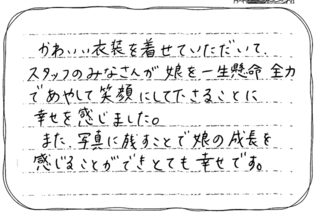 かわいい衣装を着せていただいて
スタッフのみなさんが娘を一生懸命 全力
であやして笑顔にして下さることに
幸せを感じました。
また、写真に残すことで娘の成長を
感じることができとても幸せです。